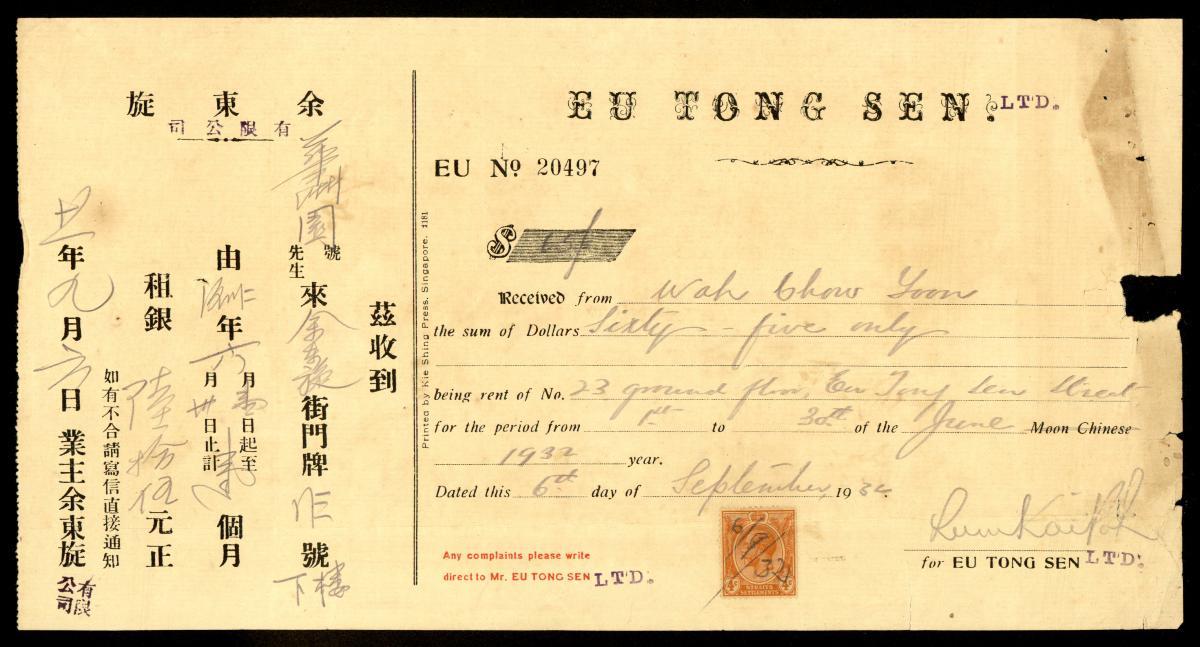 余東旋
有限公司
茲收到
號
先生來余東旋街門牌号號
樓下
由年六月初一日起至
月卅日止計個月
租銀陸拾伍元正
如有不合請寫信直接通知
廿一年九月六日業主余東旋
有限公司
EU TONG SEN. LTD.
EU No 20497
$ 65/
Received from Wah Chow Yoon
the sum of Dollars Sixty - five only
being rent of No. 23 ground floor, Eu Tong Sen Street
for the period from 1st to 30th of the June Moon Chinese
1932 year.
Dated this 6th day of September, 1932
6/9/32
4c
STRAITS SETTLEMENTS
Any complaints please write
direct to Mr. EU TONG SEN LTD.
for EU TONG SEN LTD.
Printed by Kie Shing Press, Singapore. 1181